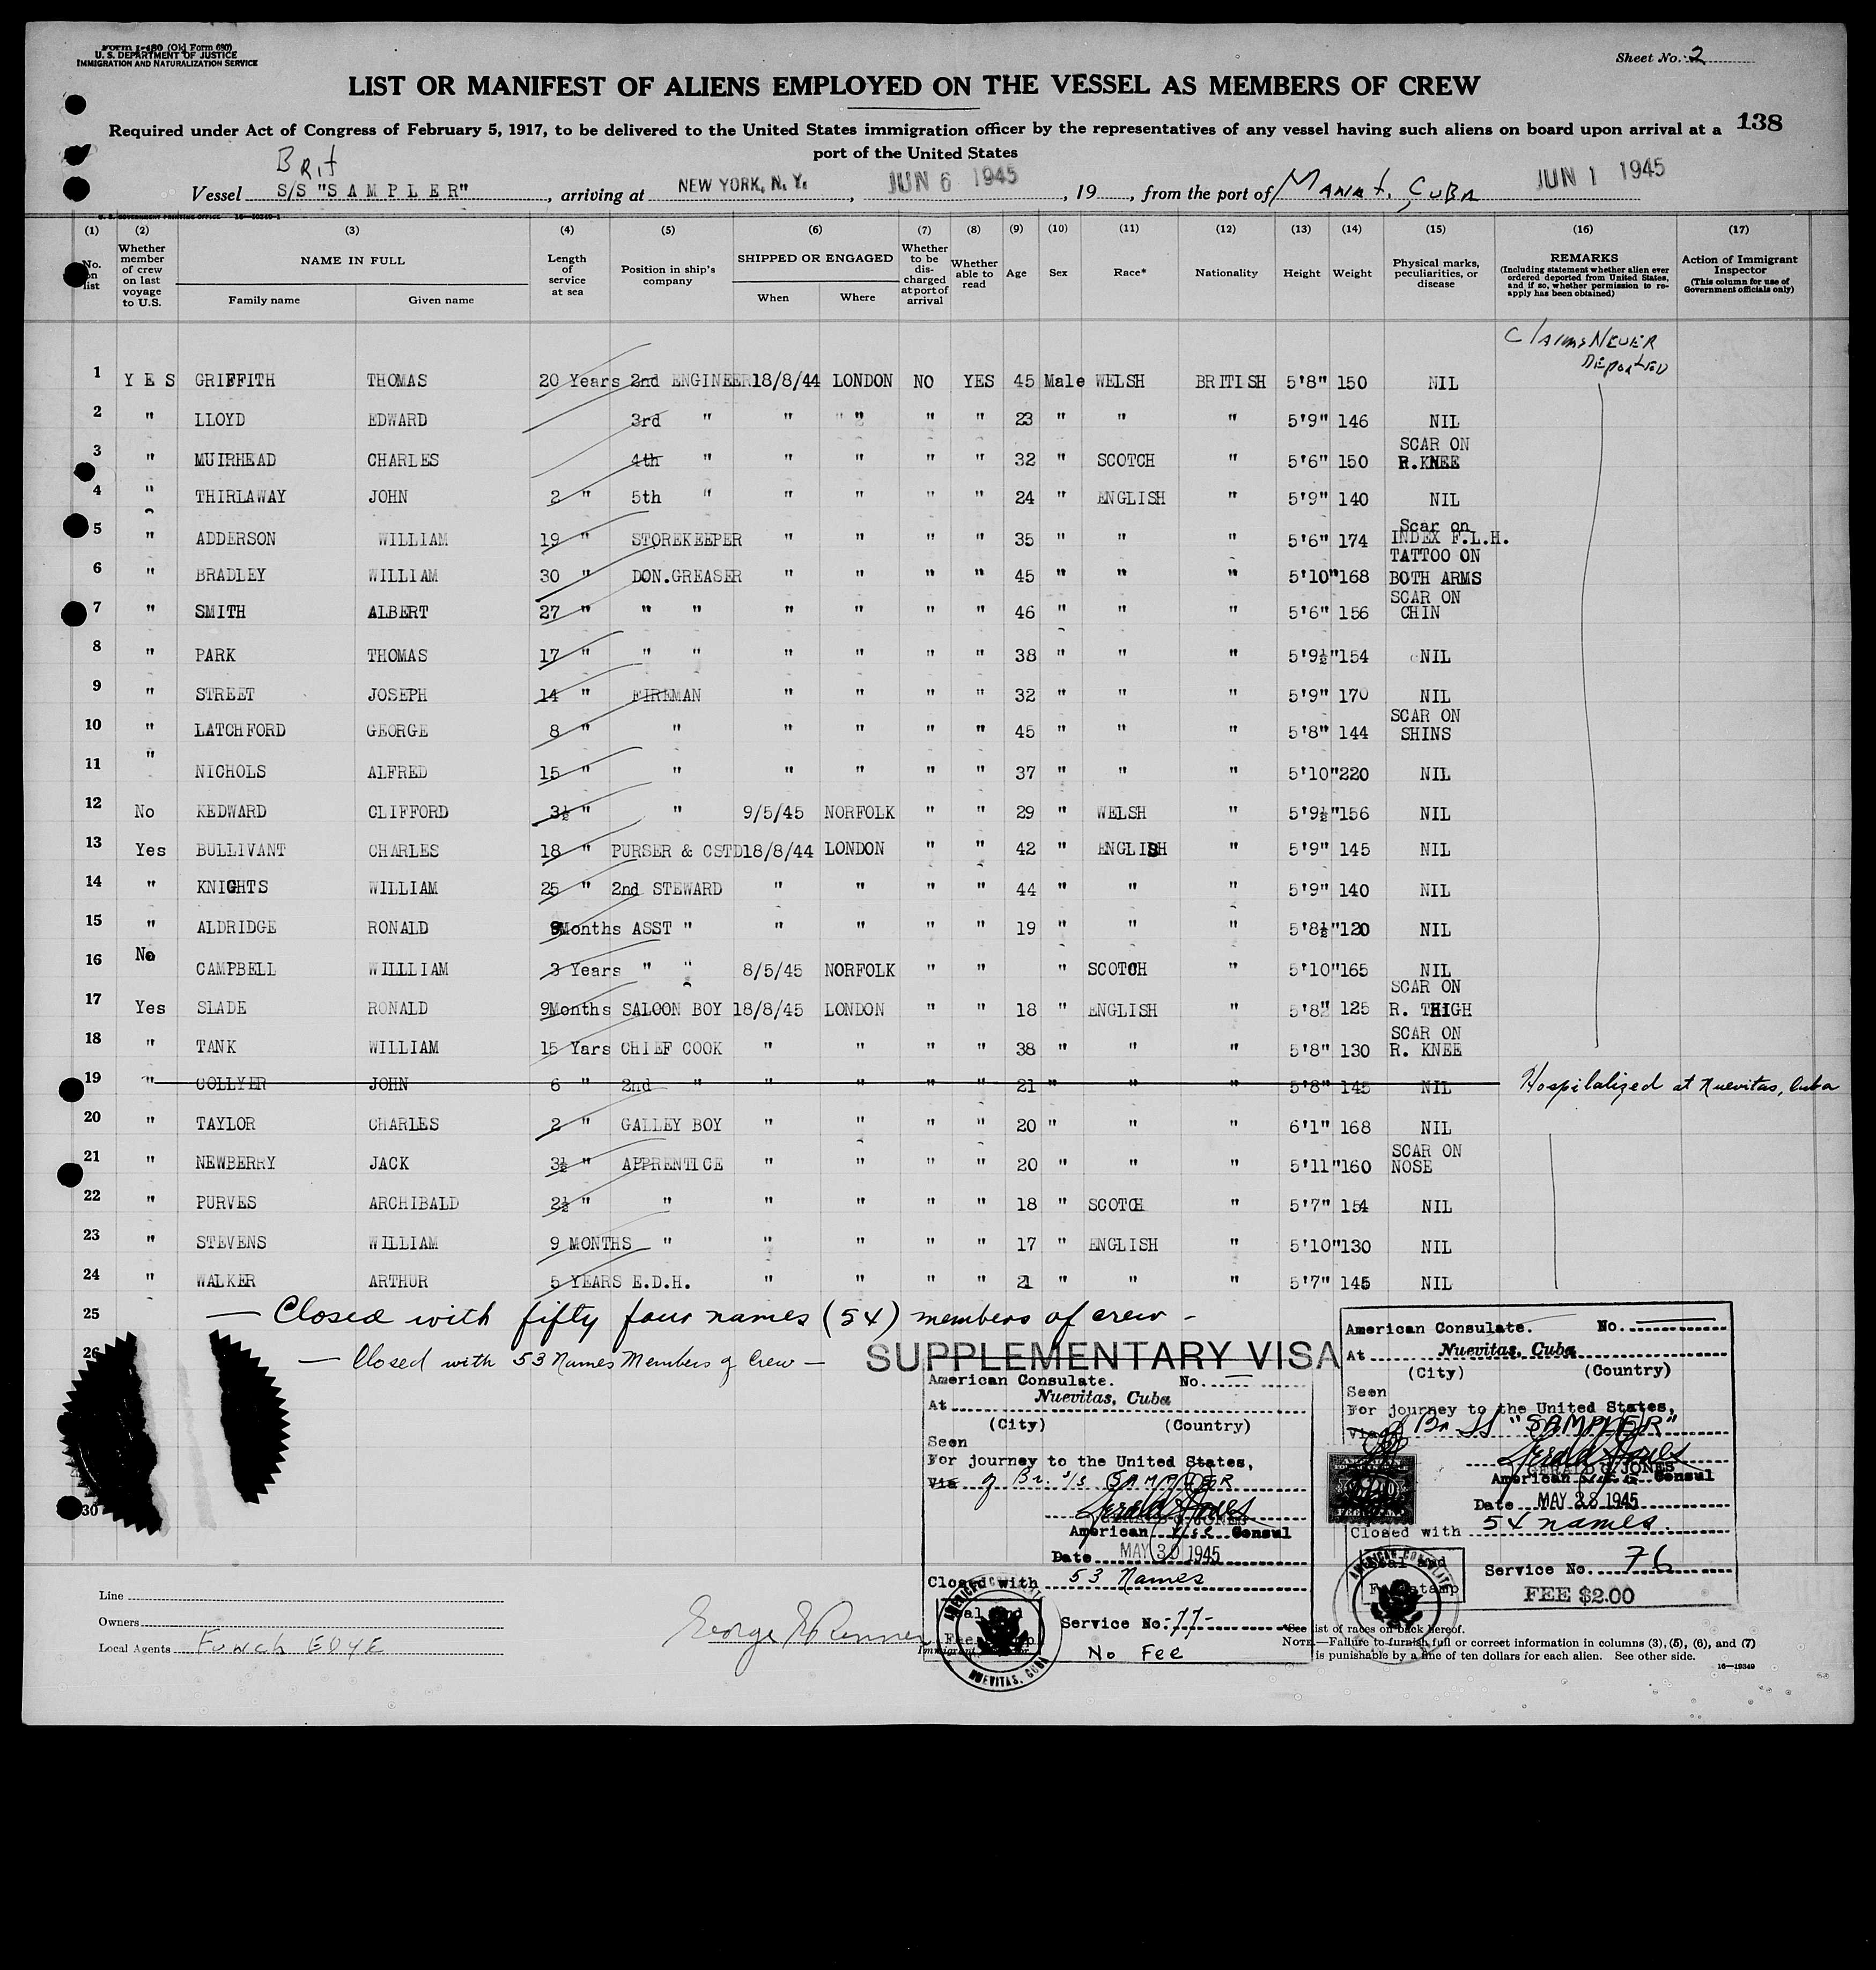 Form I-480 (Old Form 680)
U. S. DEPARTMENT OF JUSTICE
IMMIGRATION AND NATURALIZATION SERVICE
Sheet No. 2
LIST OR MANIFEST OF ALIENS EMPLOYED ON THE VESSEL AS MEMBERS OF CREW
138
Required under Act of Congress of February 5, 1917, to be delivered to the United States immigration officer by the representatives of any vessel having such aliens on board upon arrival at a
port of the United States
Brit
Vessel S/S "S A M P L E R", arriving at NEW YORK, N. Y., JUN 6 1945, 19, from the port of Manati, Cuba JUN 1 1945
U. S. GOVERNMENT PRINTING OFFICE 16-19349-1
(1) (2) (3) (4) (5) (6) (7) (8) (9) (10) (11) (12) (13) (14) (15) (16) (17)
No. on list
Whether member of crew on last voyage to U.S.
NAME IN FULL
Family name
Given name
Length of service at sea
Position in ship's company
SHIPPED OR ENGAGED
When
Where
Whether to be discharged at port of arrival
Whether able to read
Age
Sex
Race*
Nationality
Height
Weight
Physical marks, peculiarities, or disease
REMARKS
(Including statement whether alien ever ordered deported from United States, and if so, whether permission to re-apply has been obtained)
Action of Immigrant Inspector
(This column for use of Government officials only)
Claims Never
Deported
1 Y E S GRIFFITH THOMAS 20 Years 2nd ENGINEER 18/8/44 LONDON NO YES 45 Male WELSH BRITISH 5'8" 150 NIL
2 " LLOYD EDWARD 3rd " " " " " 23 " " " 5'9" 146 NIL
3 " MUIRHEAD CHARLES 4th " " " " " 32 " SCOTCH " 5'6" 150 SCAR ON R.KNEE
4 " THIRLAWAY JOHN 2 " 5th " " " " " 24 " ENGLISH " 5'9" 140 NIL
5 " ADDERSON WILLIAM 19 " STOREKEEPER " " " " 35 " " " 5'6" 174 Scar on INDEX F.L.H.
6 " BRADLEY WILLIAM 30 " DON.GREASER " " " " 45 " " " 5'10" 168 TATTOO ON BOTH ARMS
7 " SMITH ALBERT 27 " " " " " " " 46 " " " 5'6" 156 SCAR ON CHIN
8 " PARK THOMAS 17 " " " " " " " 38 " " " 5'9½" 154 NIL
9 " STREET JOSEPH 14 " FIREMAN " " " " 32 " " " 5'9" 170 NIL
10 " LATCHFORD GEORGE 8 " " " " " " 45 " " " 5'8" 144 SCAR ON SHINS
11 " NICHOLS ALFRED 15 " " " " " " 37 " " " 5'10" 220 NIL
12 No KEDWARD CLIFFORD 3½ " " 9/5/45 NORFOLK " " 29 " WELSH " 5'9½" 156 NIL
13 Yes BULLIVANT CHARLES 18 " PURSER & CSTD 18/8/44 LONDON " " 42 " ENGLISH " 5'9" 145 NIL
14 " KNIGHTS WILLIAM 25 " 2nd STEWARD " " " " 44 " " " 5'9" 140 NIL
15 " ALDRIDGE RONALD 9Months ASST " " " " " 19 " " " 5'8½" 120 NIL
16 No CAMPBELL WILLLIAM 3 Years " " 8/5/45 NORFOLK " " " SCOTCH " 5'10" 165 NIL
17 Yes SLADE RONALD 9Months SALOON BOY 18/8/45 LONDON " " 18 " ENGLISH " 5'8" 125 SCAR ON R. THIGH
18 " TANK WILLIAM 15 Yars CHIEF COOK " " " " 38 " " " 5'8" 130 SCAR ON R. KNEE
19 " COLLYER JOHN 6 " 2nd " " " " " 21 " " " 5'8" 145 NIL Hospitalized at Nuevitas, Cuba
20 " TAYLOR CHARLES 2 " GALLEY BOY " " " " 20 " " " 6'1" 168 NIL
21 " NEWBERRY JACK 3½ " APPRENTICE " " " " 20 " " " 5'11" 160 SCAR ON NOSE
22 " PURVES ARCHIBALD 2½ " " " " " " 18 " SCOTCH " 5'7" 154 NIL
23 " STEVENS WILLIAM 9 MONTHS " " " " " 17 " ENGLISH " 5'10" 130 NIL
24 " WALKER ARTHUR 5 YEARS E.D.H. " " " " 21 " " " 5'7" 145 NIL
25 — Closed with fifty four names (54) members of crew -
26 — Closed with 53 Names Members of Crew —
30
SUPPLEMENTARY VISA
American Consulate. No.
At Nuevitas, Cuba
(City) (Country)
Seen
For journey to the United States,
Via of Br. s/s SAMPLER
GERALD G. JONES
American Vice Consul
Date MAY 30 1945
Closed with 53 Names
Seal and
Fee stamp
Service No. 77-
No Fee
AMERICAN CONSULATE
NUEVITAS, CUBA
American Consulate. No.
At Nuevitas, Cuba
(City) (Country)
Seen
For journey to the United States,
Via Br SS "SAMPLER"
GERALD G. JONES
American Vice Consul
Date MAY 28 1945
Closed with 54 names.
Seal and
Fee stamp
Service No. 76
FEE $2.00
Line
Owners
Local Agents Funch Edye
George E Renner
Immigrant
*See list of races on back hereof.
NOTE.—Failure to furnish full or correct information in columns (3), (5), (6), and (7)
is punishable by a fine of ten dollars for each alien. See other side.
16—19349